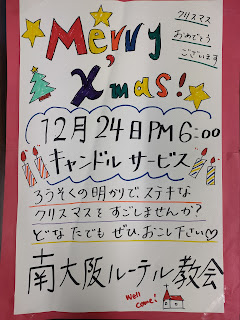 Merry
クリスマス
おめでとう
ございます
Xmas!
12月24日PM6:00
キャンドルサービス
ろうそくの明かりで、ステキな
クリスマスをすごしませんか?
どなたでもぜひおこし下さい♡
南大阪ルーテル教会
Well
come!